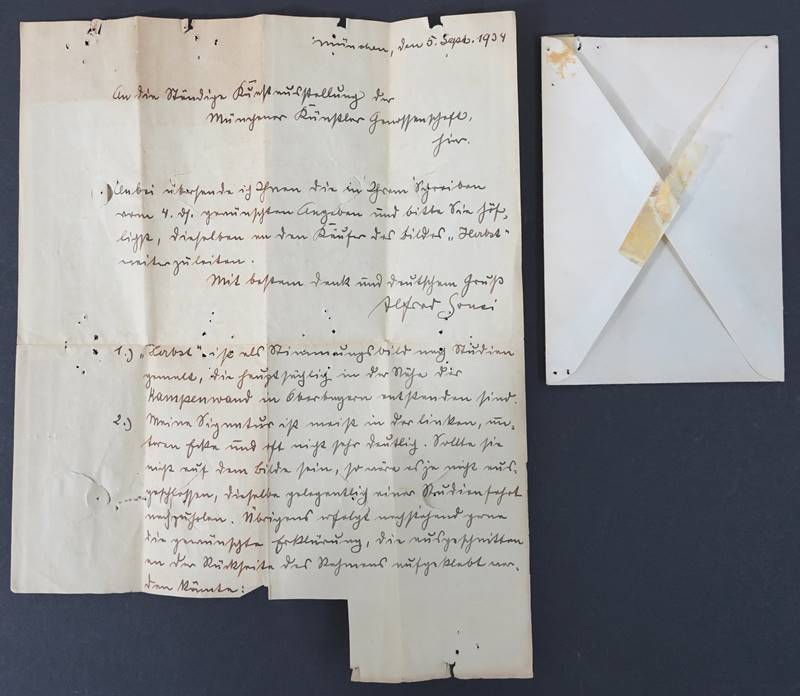 München, den 5. Sept. 1934
An die Ständige Kunstausstellung der
Münchener Künstler Genossenschaft,
hier.
Anbei übersende ich Ihnen die in Ihrem Schreiben
vom 4. ds. gewünschten Angaben und bitte Sie höf-
lichst, dieselben an den Käufer des Bildes „Herbst"
weiterzuleiten.
Mit bestem Dank und deutschem Gruß
Alfred
1.) „Herbst" ist als Stimmungsbild nach Studien
gemalt, die hauptsächlich in der Nähe der
Kampenwand in Oberbayern entstanden sind.
2.) Meine Signatur ist meist in der linken, un-
teren Ecke und oft nicht sehr deutlich. Sollte sie
nicht auf dem Bilde sein, so wäre es ja nicht aus-
geschlossen, dieselbe gelegentlich einer Studienfahrt
nachzuholen. Übrigens erfolgt nachstehend gerne
die gewünschte Erklärung, die ausgeschnitten
an der Rückseite des Rahmens aufgeklebt wer-
den könnte: